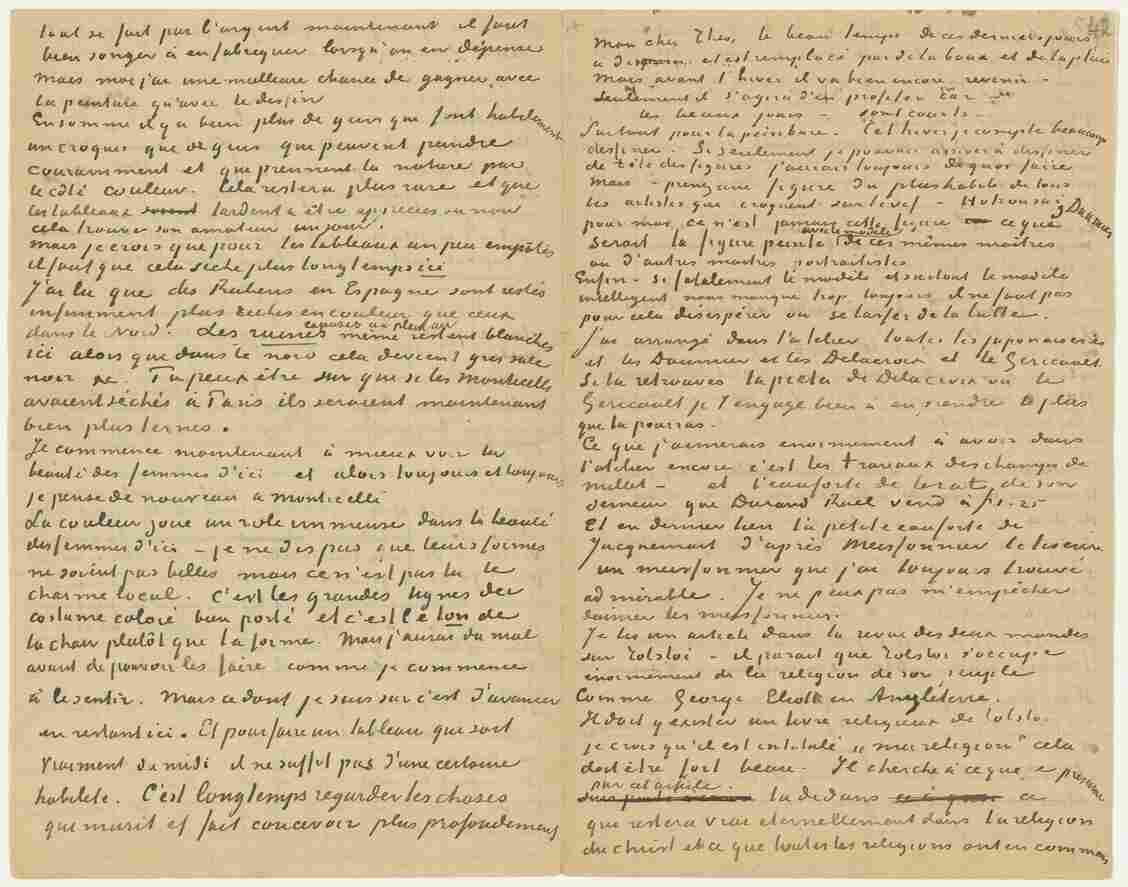 tout se fait par l'argent maintenant il faut
bien songer à en fabriquer lorsqu'on en dépense
mais moi j'ai une meilleure chance de gagner avec
la peinture qu'avec le dessin
En somme il y a bien plus de gens qui font habilement
un croquis que de gens qui peuvent peindre
couramment et qui prennent la nature par
le côté couleur. Cela restera plus rare et que
les tableaux soient tardent à être appréciés ou non
cela trouve son amateur un jour.
Mais je crois que pour les tableaux un peu empâtés
il faut que cela sèche plus longtemps ici
J'ai lu que des Rubens en Espagne sont restés
infiniment plus riches en couleur que ceux
dans le Nord. Les ruines exposées au plein air même restent blanches
ici alors que dans le nord cela devient gris sale
noir &c. Tu peux être sur que si les Monticelli
avaient séchés à Paris ils seraient maintenant
bien plus ternes.
Je commence maintenant à mieux voir la
beauté des femmes d'ici et alors toujours et toujours
je pense de nouveau a Monticelli
La couleur joue un rôle immense dans la beauté
des femmes d'ici – je ne dis pas que leurs formes
ne soient pas belles mais ce n'est pas là le
charme local. C'est les grandes lignes du
costume coloré bien porté et c'est le ton de
la chair plutôt que la forme. Mais j'aurai du mal
avant de pouvoir les faire comme je commence
à le sentir. Mais ce dont je suis sur c'est d'avancer
en restant ici. Et pour faire un tableau qui soit
vraiment du midi il ne suffit pas d'une certaine
habileté. C'est longtemps regarder les choses
qui murit et fait concevoir plus profondement
542
Mon cher Theo, le beau temps de ces derniers jours
a disparu et est remplacé par de la boue et de la pluie
mais avant l'hiver il va bien encore revenir –
Seulement il s'agira d'en profiter car
les beaux jours – sont courts –
Surtout pour la peinture. Cet hiver je compte beaucoup
dessiner. Si seulement je pouvais arriver à dessiner
de tête des figures j'aurais toujours de quoi faire
Mais – prenez une figure du plus habile de tous
les artistes qui croquent sur le vif – Hokousai, Daumier
pour moi ce n'est jamais cette figure ce que
serait la figure peinte avec le modèle de ces mêmes maîtres
ou d'autres maîtres portraitistes
Enfin – si fatalement le modèle et surtout le modèle
intelligent nous manque trop toujours il ne faut pas
pour cela désespérer ou se lasser de la lutte.
J'ai arrangé dans l'atelier toutes les japonaiseries
et les Daumier et les Delacroix et le Gericault.
Si tu retrouves la pieta de Delacroix ou le
Gericault je t'engage bien à en prendre le plus
que tu pourras –
Ce que j'aimerais enormement à avoir dans
l'atelier encore c'est les travaux des champs de
Millet – et l'eau forte de Lerat de son
semeur que Durand Ruel vend à f 1.25
Et en dernier lieu la petite eau forte de
Jacquemart d'après Meissonnier le liseur.
un meissonnier que j'ai toujours trouvé
admirable. Je ne peux pas m'empêcher
d'aimer les meissonnier.
Je lis un article dans la revue des deux mondes
sur Tolstoï – il parait que Tolstoi s'occupe
énormement de la religion de son peuple
Comme George Eliott en Angleterre.
Il doit y exister un livre religieux de Tolstoi
je crois qu'il est intitulé „ma religion" cela
doit être fort beau. Il cherche à ce que je présume
par cet article. là dedans ce
qui restera vrai eternellement dans la religion
du Christ et ce que toutes les religions ont en commun